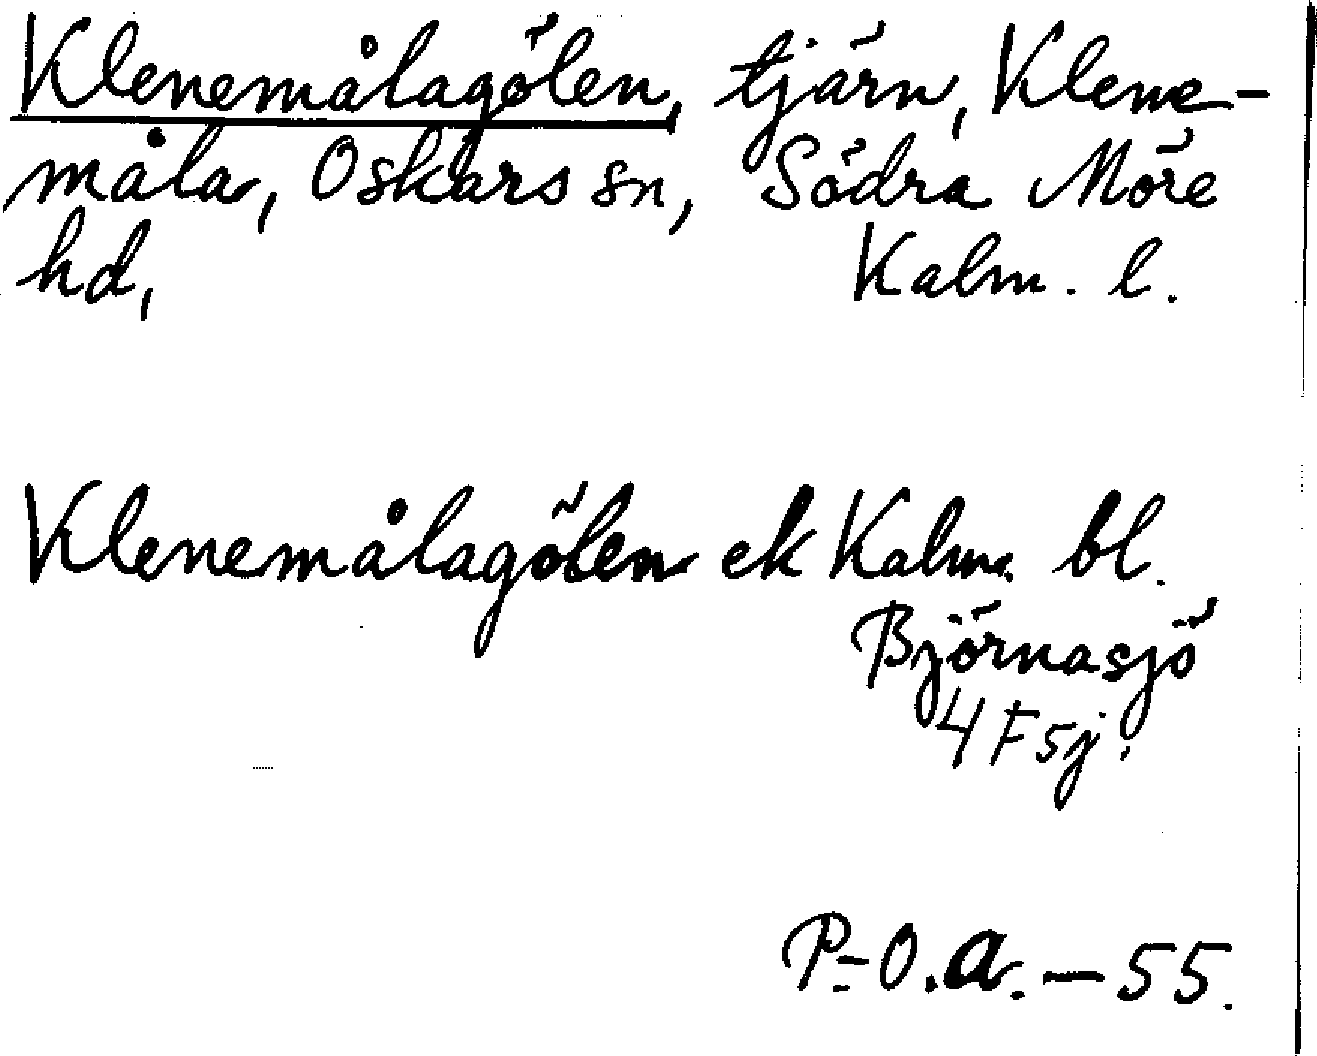 Klenemålagölen, tjärn, Klene-
måla, Oskars sn, Södra Möre
hd, Kalm. l.
Klenemålagölen ek Kalm. bl.
Björnasjö
4 F sj.
P-O.a. - 55.